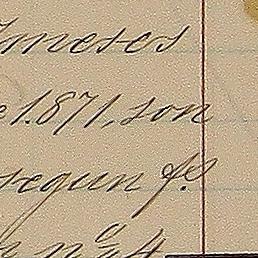 meses
1.871, son
segun f.
nº 4